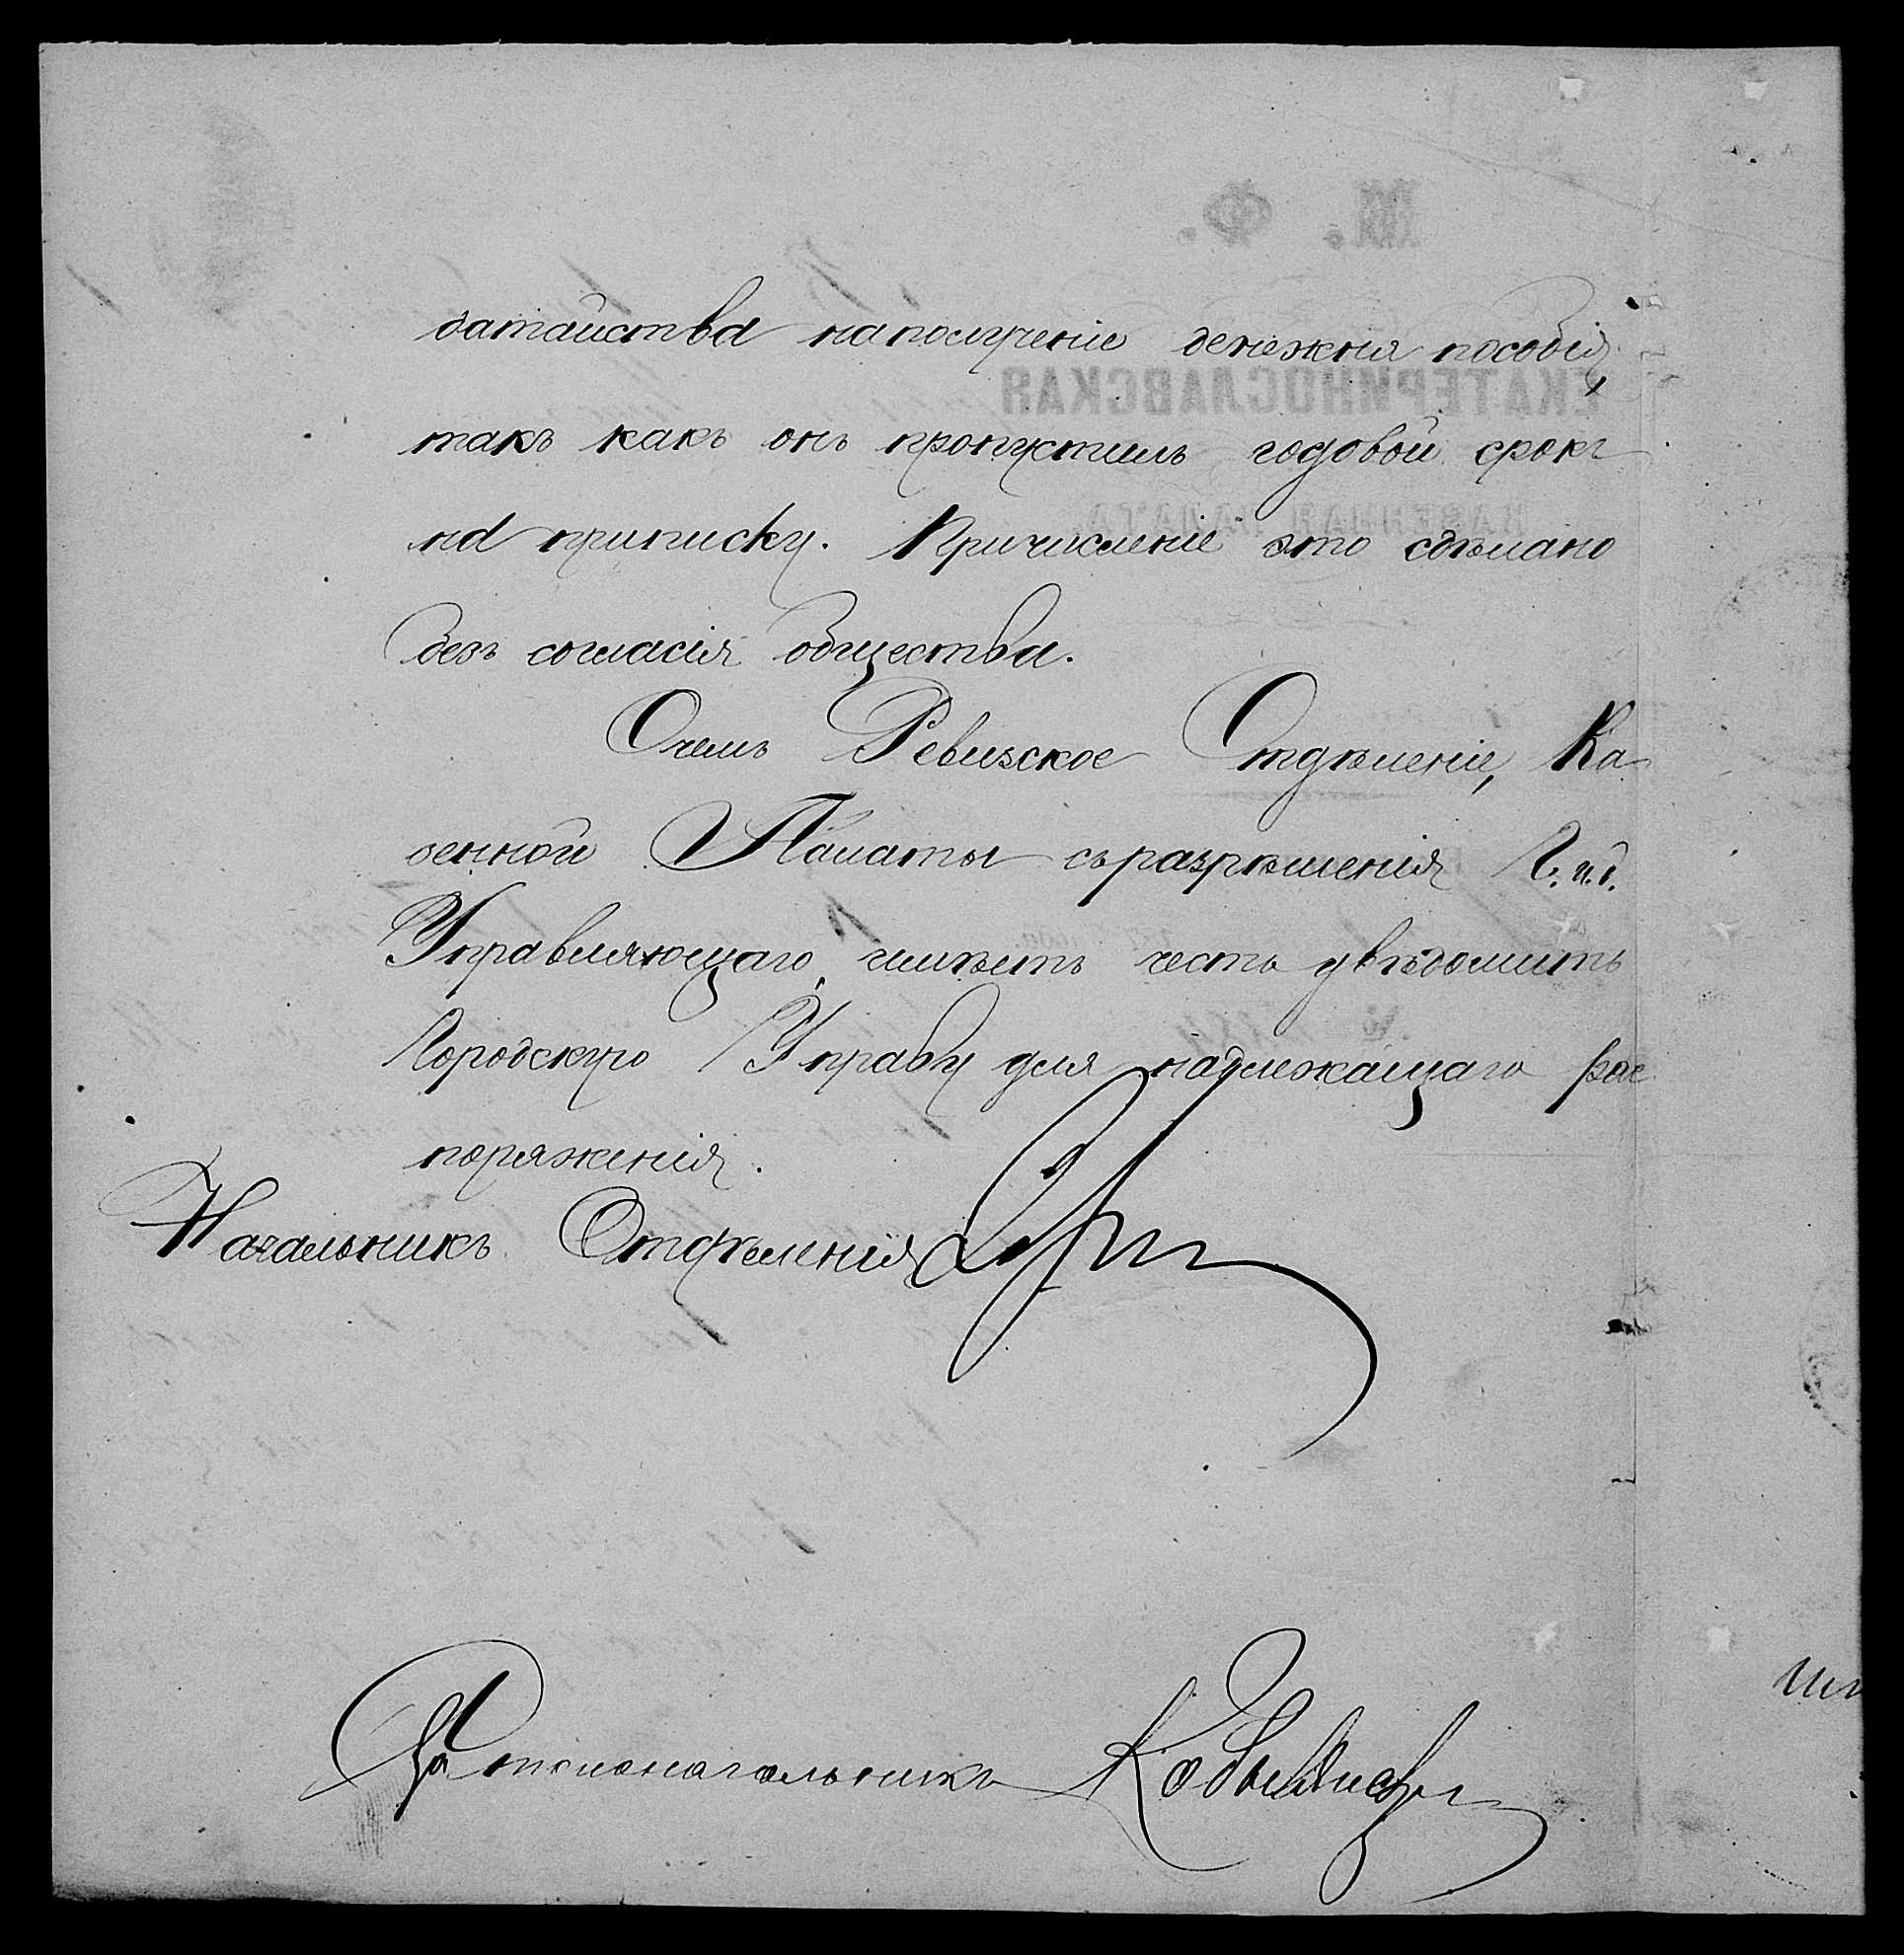 датайства на полученіе денежнія пособія,
такъ какъ онъ пропустилъ годовой срокъ
на приписку. Причисленіе это сдѣлано
безъ согласія общества.
О чемъ Ревизское Отдѣленіе, Ка
зенной Палаты съ разрѣшенія Г. и. д.
Управляющаго, имѣетъ честь увѣдомить
Городскую Управу для надлежащаго рас
поряженія.
Начальникъ Отдѣленія
За Столоначальника
М. Ф.
ЕКАТЕРИНОСЛАВСКАЯ
КАЗЕННАЯ ПАЛАТА.